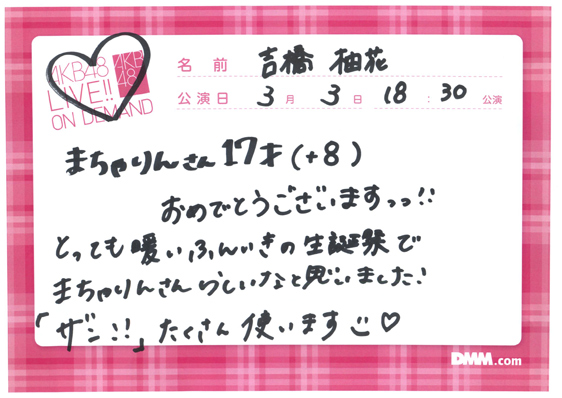 AKB48
LIVE!!
ON DEMAND
AKB
48
名前 吉橋 柚花
公演日 3月 3日 18:30 公演
まちゃりんさん 17才(+8)
おめでとうございますっっ!!
とっても暖いふんいきの生誕祭で
まちゃりんさんらしいなと思いました!
「ザン!!」たくさん使います
DMM.com